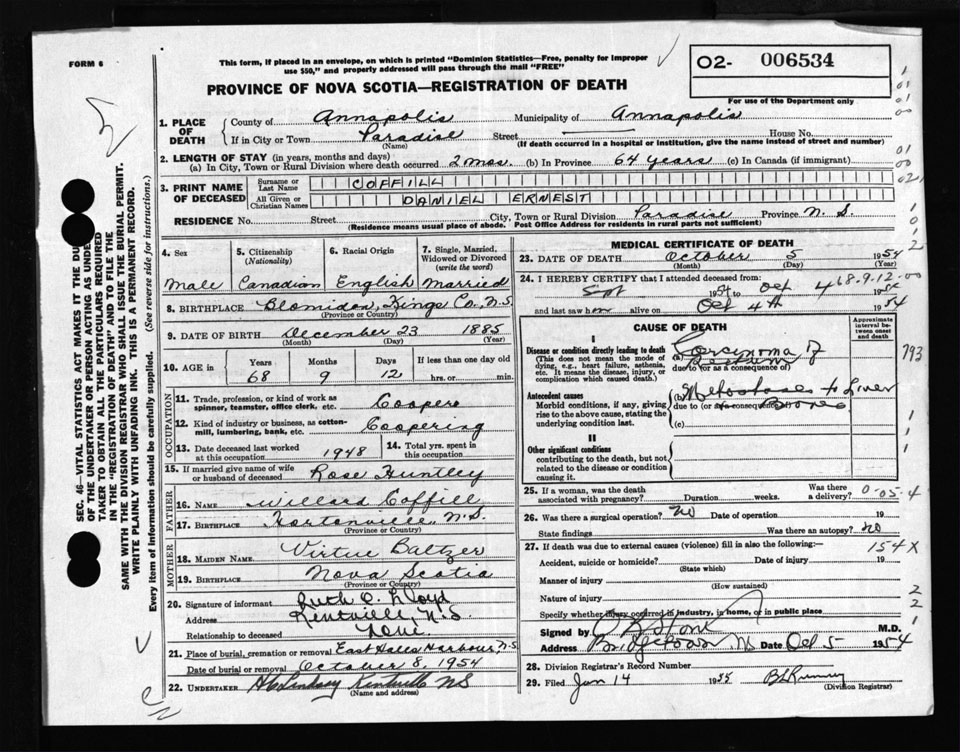 FORM 6
This form, if placed in an envelope, on which is printed "Dominion Statistics—Free, penalty for improper
use $50," and properly addressed will pass through the mail "FREE"
O2- 006534
For use of the Department only
PROVINCE OF NOVA SCOTIA—REGISTRATION OF DEATH
SEC. 46—VITAL STATISTICS ACT MAKES IT THE DU
OF THE UNDERTAKER OR PERSON ACTING AS UNDE
TAKER TO OBTAIN ALL THE PARTICULARS REQUIRED
IN THE "REGISTRATION OF DEATH" AND TO FILE THE
SAME WITH THE DIVISION REGISTRAR WHO SHALL ISSUE THE BURIAL PERMIT.
WRITE PLAINLY WITH UNFADING INK. THIS IS A PERMANENT RECORD.
Every item of Information should be carefully supplied. (See reverse side for instructions.)
1. PLACE OF DEATH County of Annapolis Municipality of Annapolis
If in City or Town Paradise Street House No.
(Name) (If death occurred in a hospital or institution, give the name instead of street and number)
2. LENGTH OF STAY (in years, months and days)
(a) In City, Town or Rural Division where death occurred 2 mos. (b) In Province 64 years (c) In Canada (if immigrant)
3. PRINT NAME OF DECEASED Surname or Last Name COFFILL
All Given or Christian Names DANIEL ERNEST
RESIDENCE No. Street City, Town or Rural Division Paradise Province N. S.
(Residence means usual place of abode. Post Office Address for residents in rural parts not sufficient)
4. Sex 5. Citizenship (Nationality) 6. Racial Origin 7. Single, Married, Widowed or Divorced (write the word)
Male Canadian English Married
8. BIRTHPLACE Blomidon, Kings Co., N.S.
(Province or Country)
9. DATE OF BIRTH December 23 1885
(Month) (Day) (Year)
10. AGE in Years Months Days If less than one day old
68 9 12 hrs. or min.
OCCUPATION
11. Trade, profession, or kind of work as spinner, teamster, office clerk, etc. Cooper
12. Kind of industry or business, as cotton-mill, lumbering, bank, etc. Coopering
13. Date deceased last worked at this occupation 1948 14. Total yrs. spent in this occupation
15. If married give name of wife or husband of deceased Rose Huntley
FATHER
16. NAME Willard Coffill
17. BIRTHPLACE Hortonville, N.S.
(Province or Country)
MOTHER
18. MAIDEN NAME Virtue Baltzer
19. BIRTHPLACE Nova Scotia
(Province or Country)
20. Signature of informant Ruth O. Lloyd
Address Kentville, N.S.
Relationship to deceased
21. Place of burial, cremation or removal East Halls Harbour, N.S.
Date of burial or removal October 8, 1954
22. UNDERTAKER Lindsay Kentville NS
(Name and address)
MEDICAL CERTIFICATE OF DEATH
23. DATE OF DEATH October 5 1954
(Month) (Day) (Year)
24. I HEREBY CERTIFY that I attended deceased from:
Sept 1954 to Oct 4 19
68-9.12-00
and last saw h alive on Oct 4th 1954
CAUSE OF DEATH
Approximate interval between onset and death
I
Disease or condition directly leading to death (a) Carcinoma of
(This does not mean the mode of dying, e.g., heart failure, asthenia, etc. It means the disease, injury, or complication which caused death.)
due to (or as a consequence of)
Antecedent causes
Morbid conditions, if any, giving rise to the above cause, stating the underlying condition last.
to Liver
due to (or as consequence of) Bones
(c)
793
II
Other significant conditions
contributing to the death, but not related to the disease or condition causing it.
25. If a woman, was the death associated with pregnancy? Duration weeks. Was there a delivery? 0-05-4
26. Was there a surgical operation? NO Date of operation 19
State findings Was there an autopsy? NO
27. If death was due to external causes (violence) fill in also the following:— 154X
Accident, suicide or homicide? Date of injury 19
(State which)
Manner of injury
(How sustained)
Nature of injury
Specify whether injury occurred in industry, in home, or in public place
Signed by M.D.
Address Bridgetown NS Date Oct 5 1954
28. Division Registrar's Record Number
29. Filed Jan 14 1955
(Division Registrar)